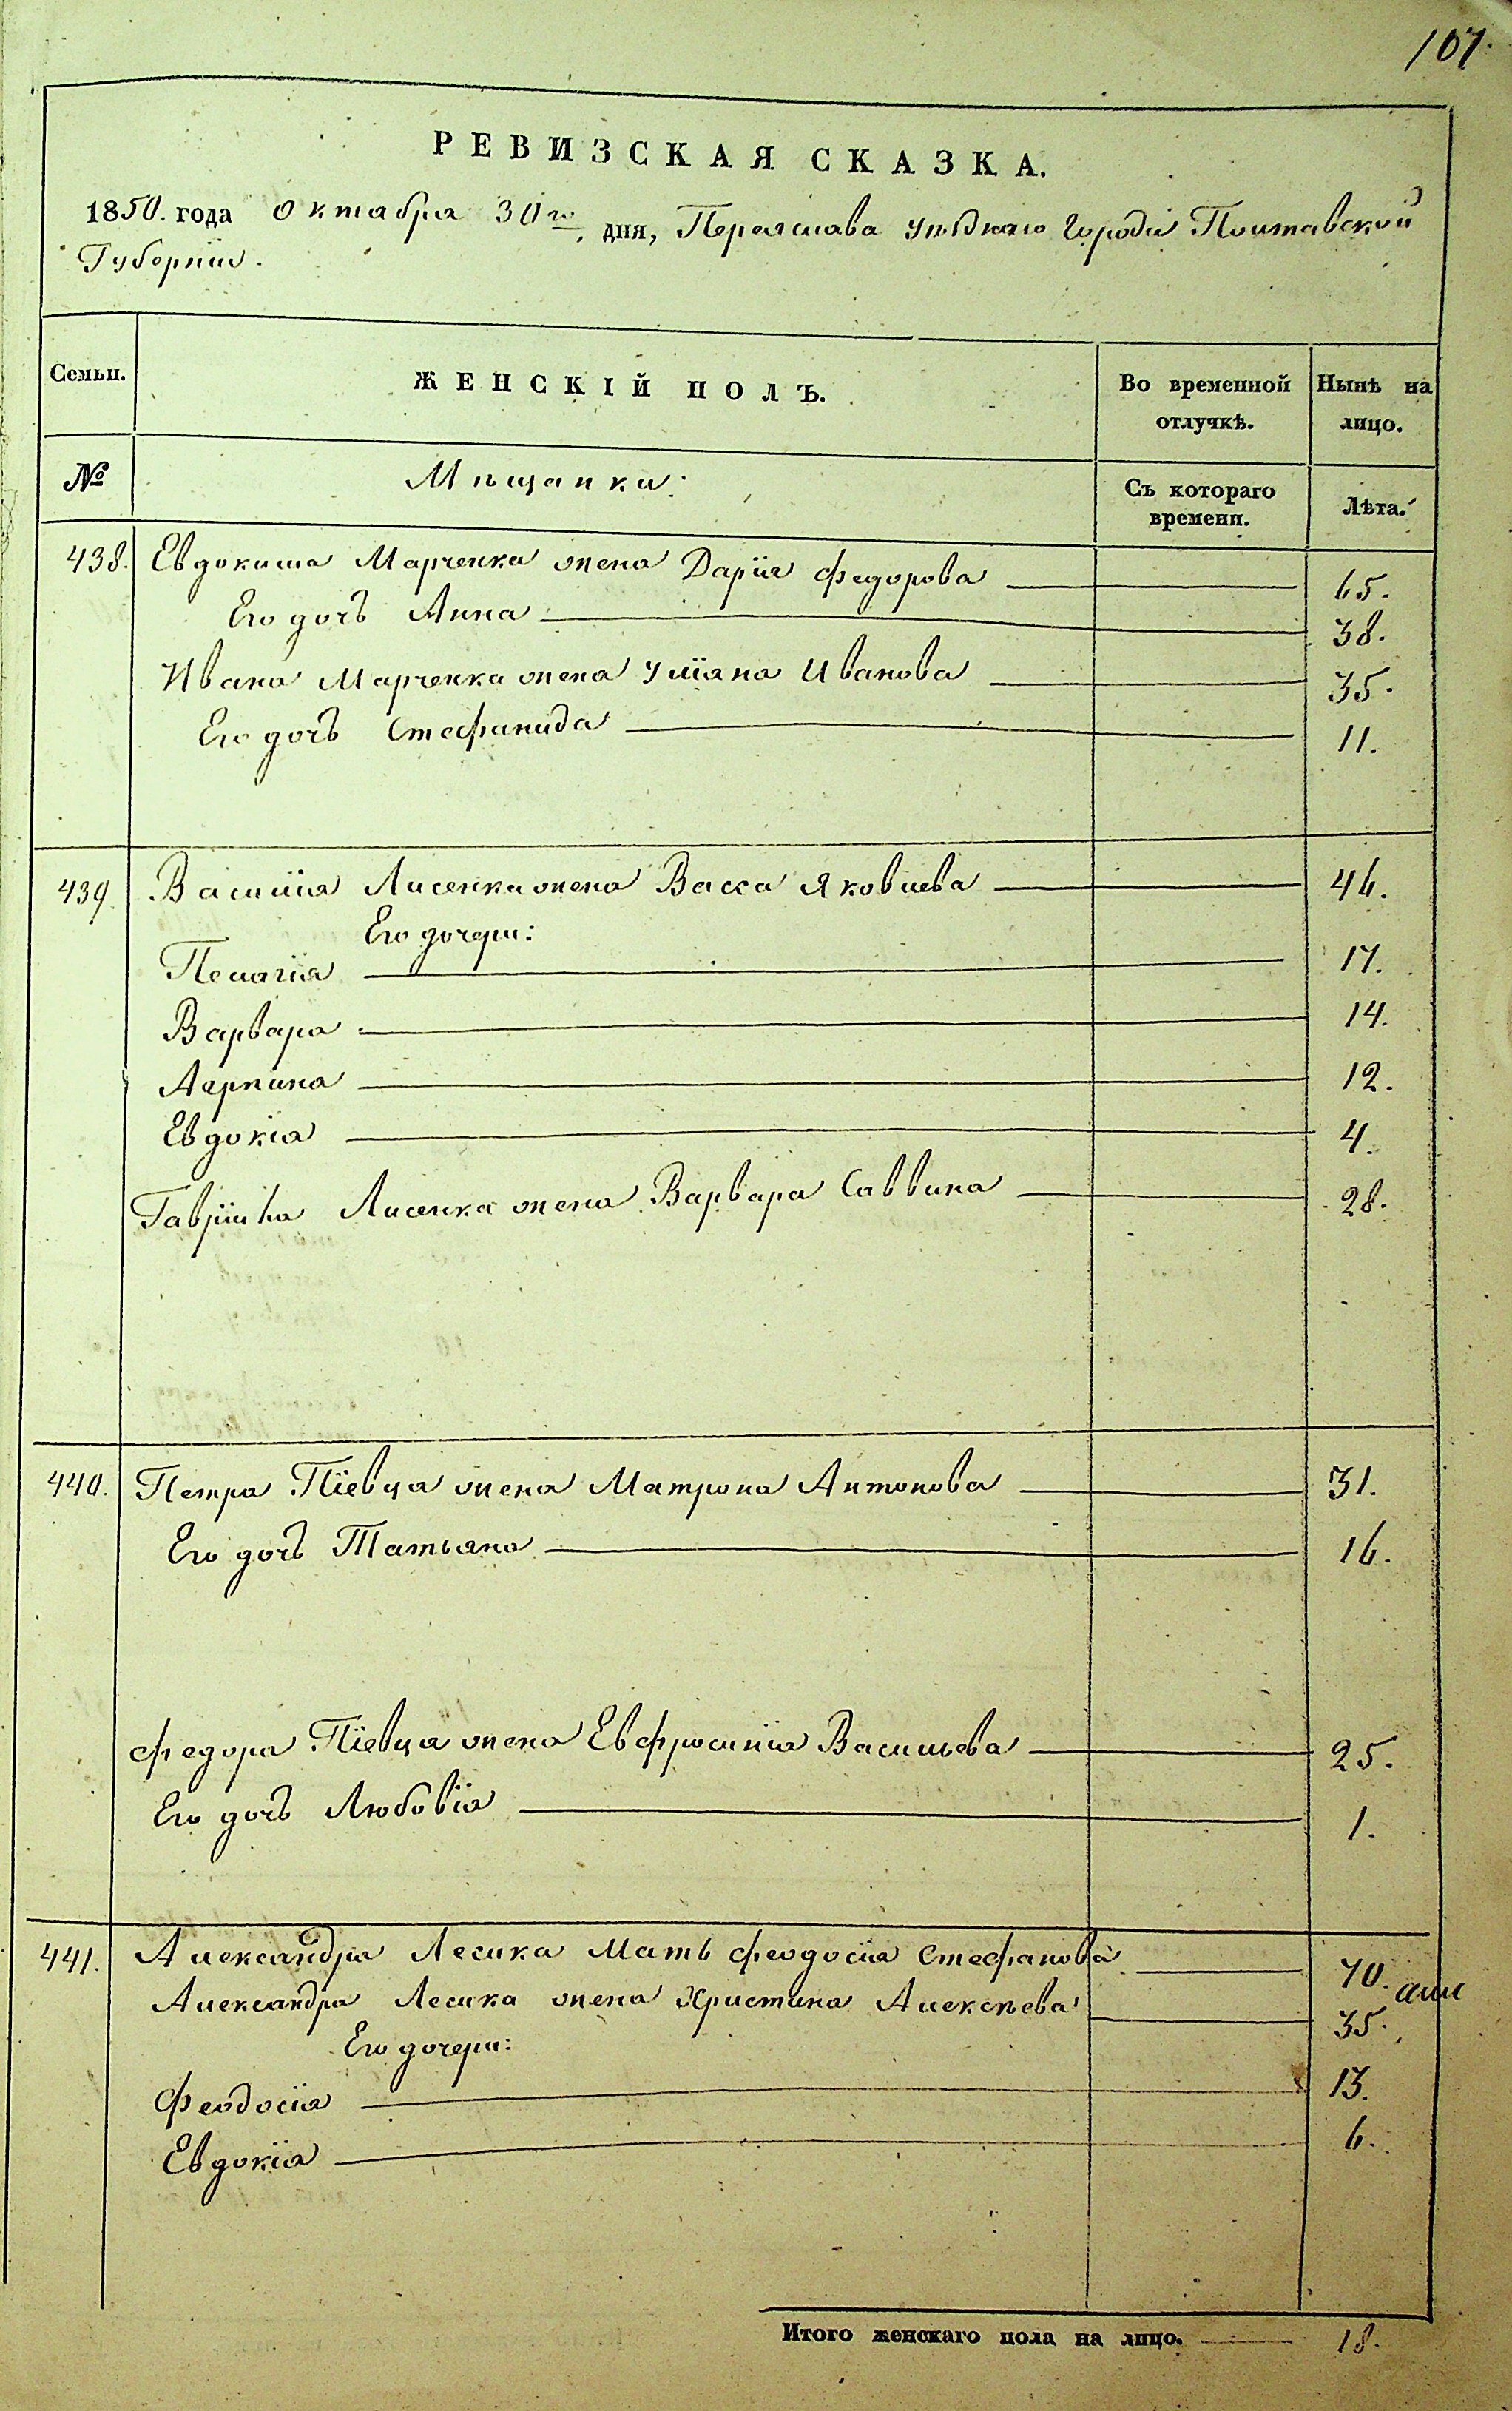 107.
РЕВИЗСКАЯ СКАЗКА.
1850. года Октября 30го дня, Переяслава уѣзднаго города Полтавской
Губерніи.
Семьи. ЖЕНСКІЙ ПОЛЪ. Во временной отлучкѣ. Нынѣ на лицо.
№ Мѣщанки: Съ котораго времени. Лѣта.
438. Евдокима Марченка жена Дарія Федорова 65.
Его дочь Анна 38.
Ивана Марченка жена Уліяна Иванова 35.
Его дочь Стефанида 11.
439. Василія Лисенка жена Васса Яковлева 46.
Его дочери:
Пелагія 17.
Варвара 14.
Агрпина 12.
Евдокія 4.
Гавріила Лисенка жена Варвара Саввина 28.
440. Петра Пѣевца жена Матрона Антонова 31.
Его дочь Татьяна 16.
Федора Піевца жена Евфросинія Васильева 25.
Его дочь Любовія 1.
441. Александра Лесика Мать Феодосія Стефанова 70.
Александра Лесика жена Христина Алексѣева 35.
Его дочери:
Феодосія 13.
Евдокія 6.
Итого женскаго пола на лицо. 18.